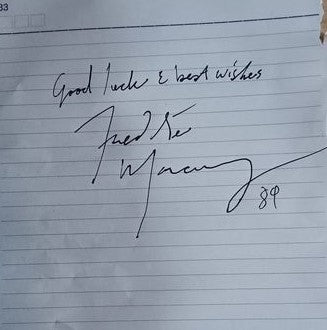 33
Good luck & best wishes
Freddie
Mercury
89